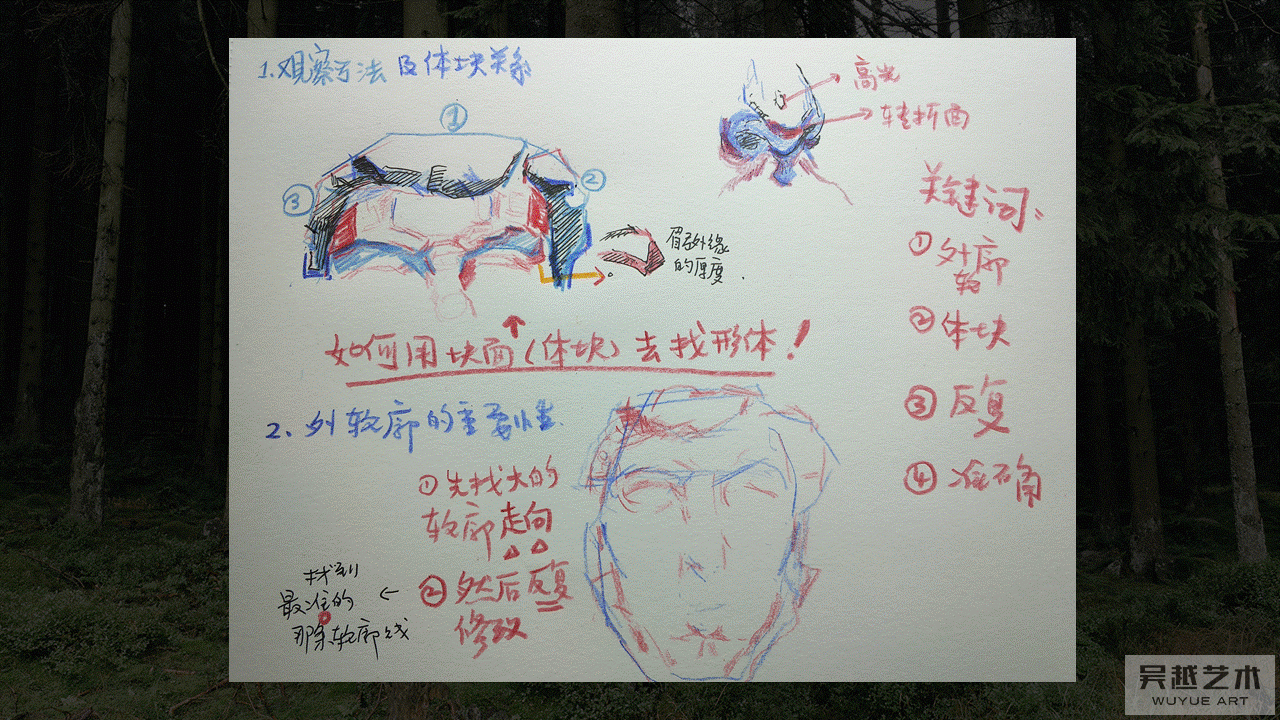 1.观察方法及体块关系
①
②
③
高光
转折面
眉弓外缘
的厚度.
如何用块面(体块)去找形体!
关键词:
①外廓
轮
②体块
③反复
④准确
2.外轮廓的重要性.
①先找大的
轮廓走向
②然后反复
修改
找到
最准的
那条轮廓线
吴越艺术
WUYUE ART